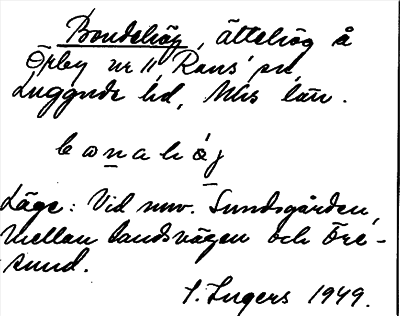 Bondehöj, ättehög å
Örby nr 11, Raus sn,
Luggude hd, Mhs län.
bonahöj
Läge: Vid nuv. Sundsgården,
mellan landsvägen och Öre-
sund.
S. Ingers 1949.